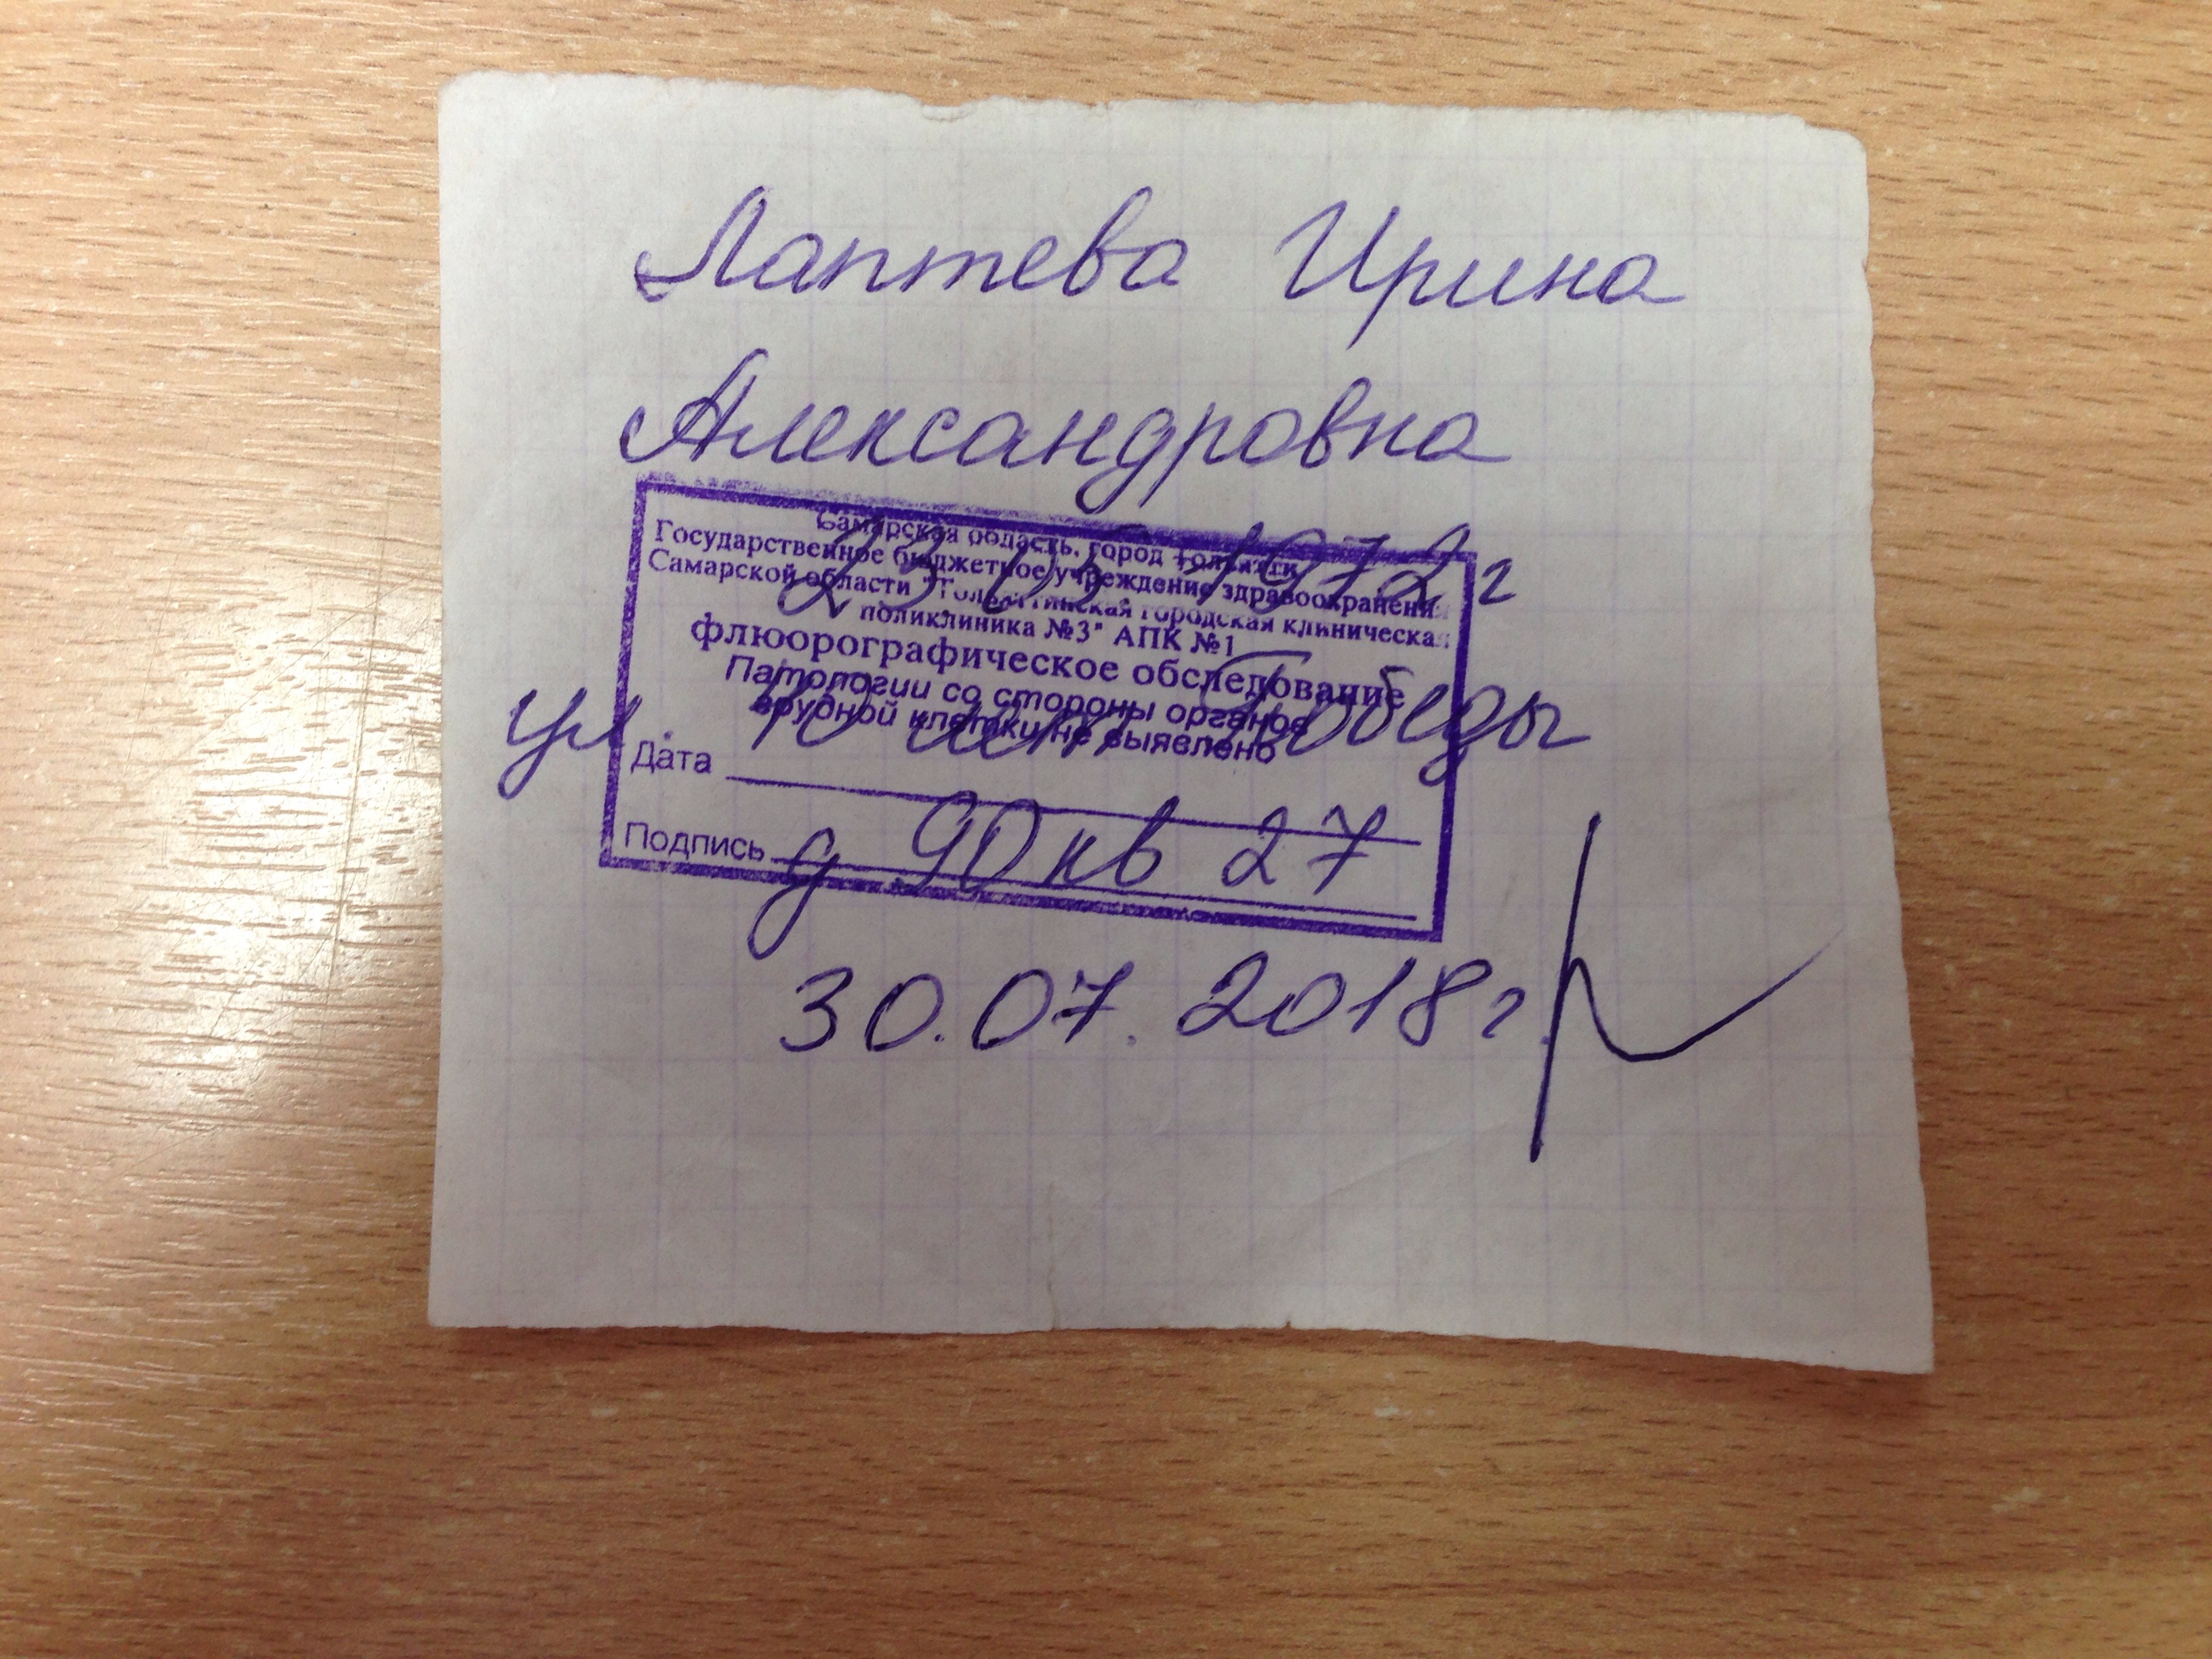 Лаптева Ирина
Александровна
Самарская область, город Тольятти
Государственное бюджетное учреждение здравоохранения
Самарской области "Тольяттинская городская клиническая
поликлиника №3" АПК №1
23.05.1972 г
флюорографическое обследование
Патологии со стороны органов
грудной клетки не выявлено
ул 40 лет Победы
Дата
Подпись
д 90 кв 27
30.07.2018 г.